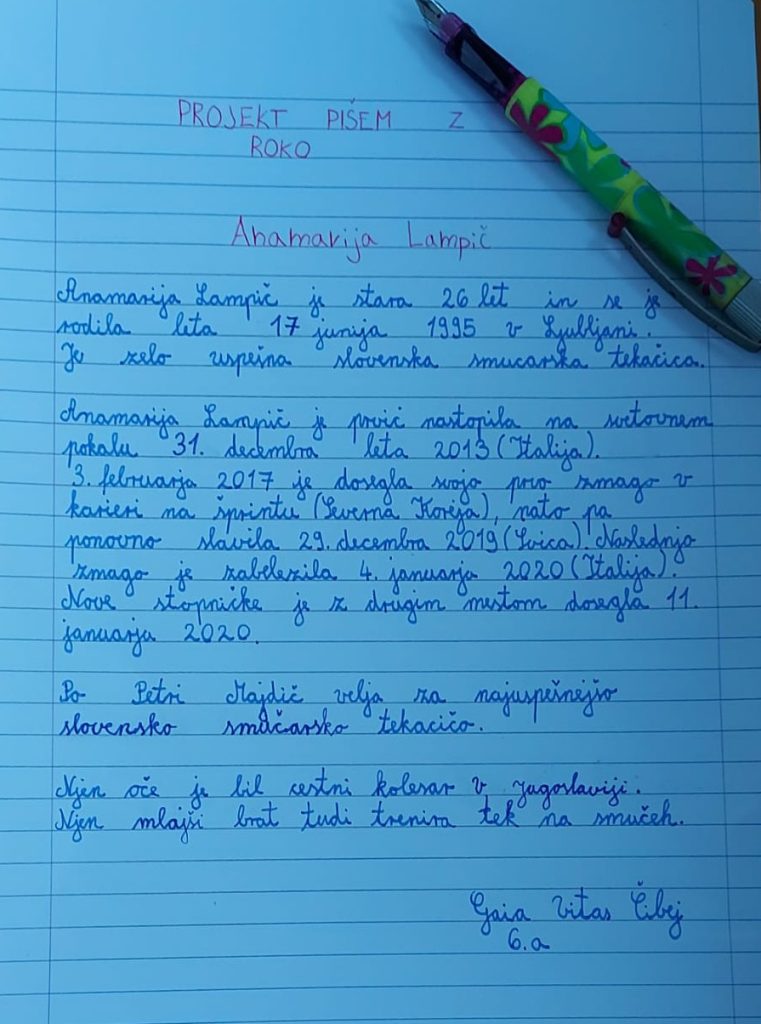 PROJEKT PIŠEM Z
ROKO
Anamarija Lampič
Anamarija Lampič je stara 26 let in se je
rodila leta 17 junija 1995 v Ljubljani.
Je zelo uspešna slovenska smucarska tekačica.
Anamarija Lampič je prvič nastopila na svetovnem
pokalu 31. decembra leta 2013 (Italija).
3. februarja 2017 je dosegla svojo prvo zmago v
karieri na šprintu (Severna Koreja), nato pa
ponovno slavila 29. decembra 2019 (Švica). Naslednjo
zmago je zabelezila 4. januarja 2020 (Italija).
Nove stopničke je z drugim mestom dosegla 11.
januarja 2020.
Po Petri Majdič velja za najuspešnejšo
slovensko smučarsko tekacičo.
Njen oče je bil cestni kolesar v Jugoslaviji.
Njen mlajši brat tudi trenira tek na smučeh.
Gaia Vitas Čibej
6.a